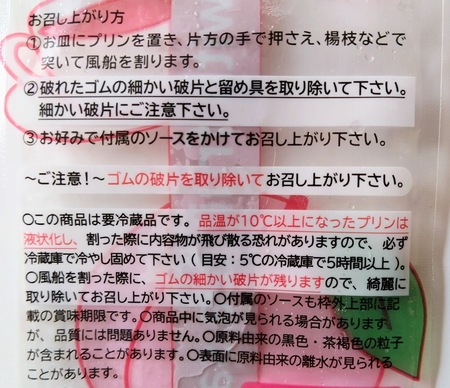 お召し上がり方
①お皿にプリンを置き、片方の手で押さえ、楊枝などで
突いて風船を割ります。
②破れたゴムの細かい破片と留め具を取り除いて下さい。
細かい破片にご注意下さい。
③お好みで付属のソースをかけてお召し上がり下さい。
～ご注意！～ゴムの破片を取り除いてお召し上がり下さい。
○この商品は要冷蔵品です。品温が10℃以上になったプリンは
液状化し、割った際に内容物が飛び散る恐れがありますので、必ず
冷蔵庫で冷やし固めて下さい（目安：5℃の冷蔵庫で5時間以上）。
○風船を割った際に、ゴムの細かい破片が残りますので、綺麗に
取り除いてお召し上がり下さい。○付属のソースも枠外上部に記
載の賞味期限です。○商品中に気泡が見られる場合があります
が、品質には問題ありません。○原料由来の黒色・茶褐色の粒子
が含まれることがあります。○表面に原料由来の離水が見られる
ことがあります。